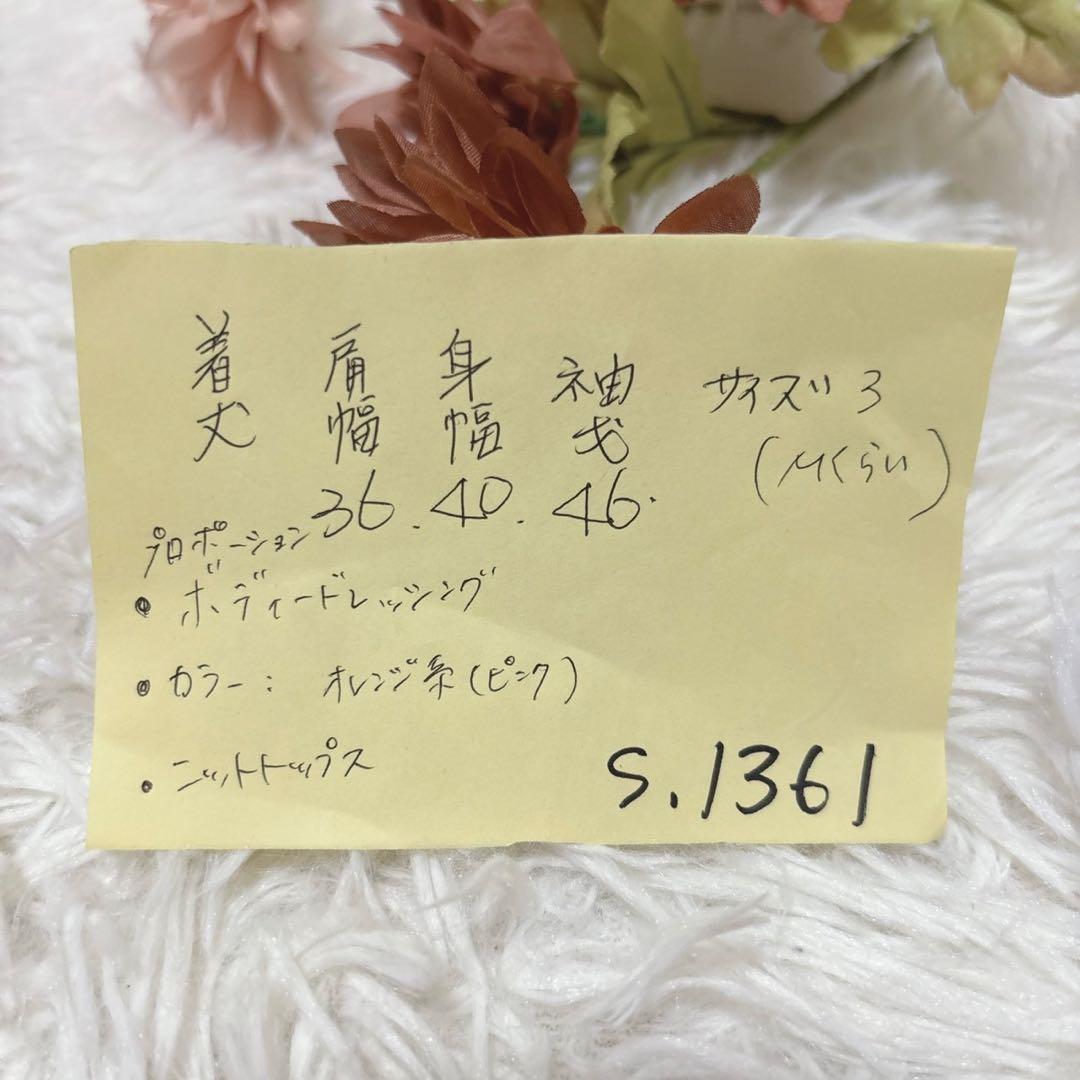 着丈 肩幅 身幅 袖丈 サイズ 3
(Mくらい)
36. 40. 46.
プロポーション
・ボディードレッシング
・カラー: オレンジ系(ピンク)
・ニットトップス
S.1361